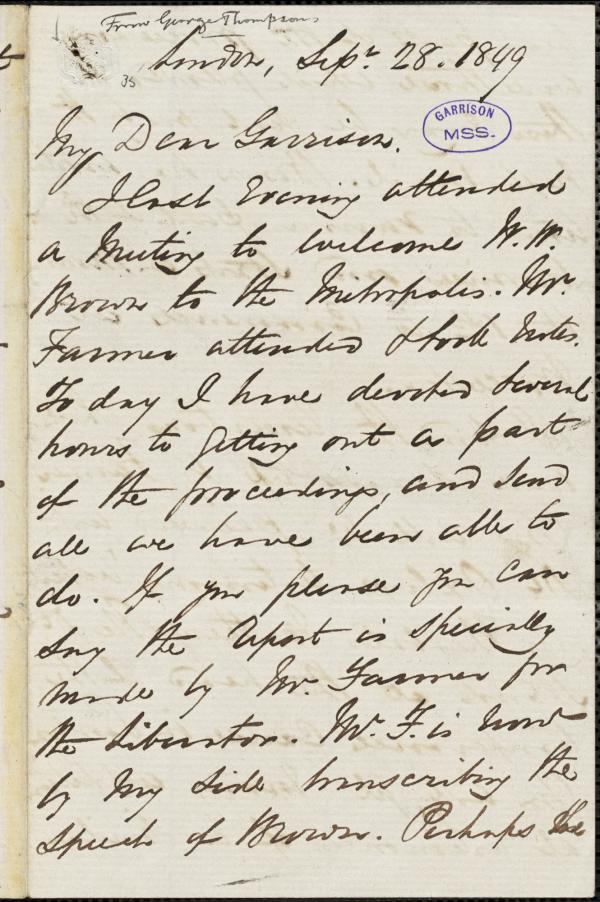 From George Thompson
London, Sepr. 28. 1849
35
GARRISON
MSS.
My Dear Garrison.
I last Evening attended
a Meeting to welcome W. W.
Brown to the Metropolis. Mr.
Farmer attended & took Notes.
To day I have devoted several
hours to getting out a part
of the proceedings, and send
all we have been able to
do. If you please you can
say the report is specially
made by Mr. Farmer for
the Liberator. Mr. F. is now
by my side transcribing the
speech of Brown. Perhaps the